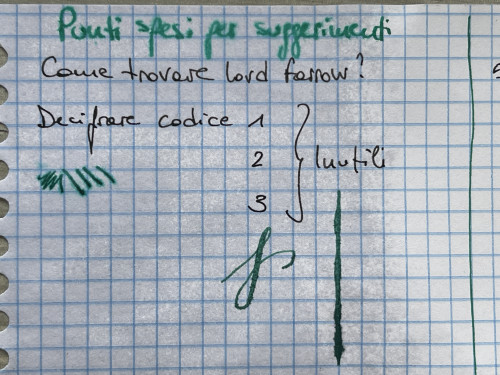 Punti spesi per suggerimenti
Come trovare lord farrow?
Decifrare codice 1
2
Inutili
3